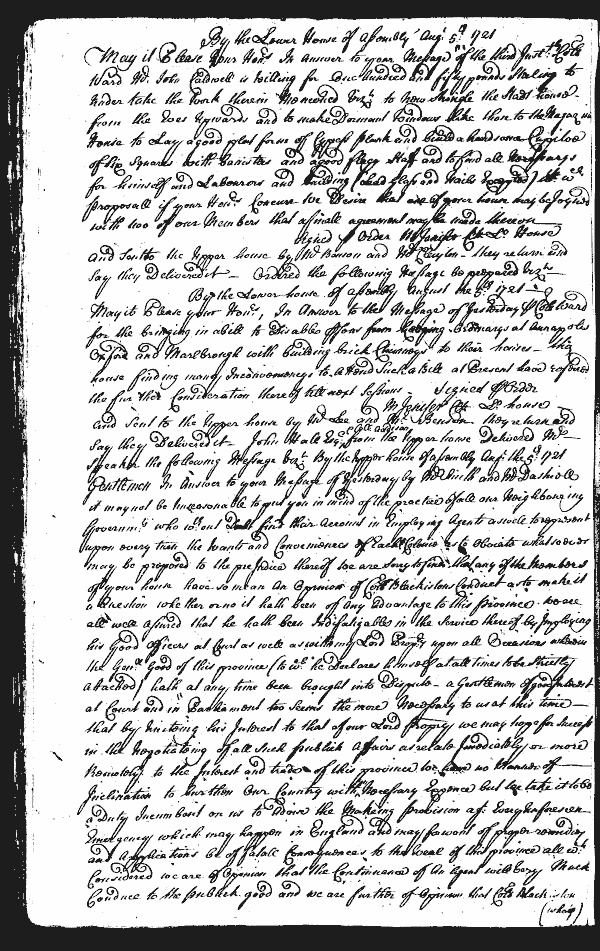 By the Lower House of Assembly Aug: 5th 1721
May it Please your Honrs In Answer to your Message of the third Inst. Colo
Ward Mr. John Caldwell is willing for One hundred and fifty pounds Sterling to
Undertake the work therein Mencioned Vizt to New Shingle the Stadt house
from the Eves Upwards and to make Dormant Windows like them to the Magazin
House to Lay a good plat form of Cypress plank and build a handsome Cupiloe
of Six Squares with Banisters and a good flagg Staff and to find all Necessarys
for himself and Labourors and building (Lead Glass and Nails Excepted) wch
proposall if your Honrs Concurr We Desire that one of your house may be Joyned
with two of our Members that a finall agreement may be made thereon
Signed p Order M Jenifer Cl Lo House
And Sent to the Upper house by Mr Benson and Mr Cleyton they return and
Say they Delivered it — Ordered the following Message be prepared Vizt
By the Lower house of assembly August the 5th 1721
May it Please your Honrs, In Answer to the Message of Yesterday p Colo Ward
for the bringing in a Bill to Disable persons from keeping Ordinarys at Annapolis
Oxford and Marlbrough with building brick Chimneys to their houses — this
house finding many Inconveniencys to attend such a Bill at Present have referred
the further Consideration thereof till next Sessions Signed p Order
M Jenifer Cl Lo. house
And Sent to the Upper house by Mr Lee and Mr Benson they return and
Say they Delivered it John Hall Esqr from the Upper house Delivered Mr
Speaker the following Message Vizt By the Upper house of Assembly Augst the 5th 1721
Gentlemen In Answer to your Message of Yesterday by Mr Smith and Mr Dashiell
it may not be unreasonable to put you in mind of the practice of all our Neighbouring
Governmts who wthout Doubt find their Account in Employing Agents as well to represent
upon every turn the Wants and Conveniences of Each Colonie as to Obviate whatsoever
may be proposed to the prejudice thereof we are Sorry to find that any of the Members
of your house have so mean An Opinion of Colo Blackistons Conduct as to make it
a Question whether or no it hath been of Any Advantage to this province. We are
all well assured that he hath been Indefatigable in the Service thereof by Imploying
his Good Officers at Court as well as with my Lord Propry upon all Occasions wherein
the Genll Good of this province (to wch he Declares himself at all times to be Strictly
Attached) hath at any time been brought into Dispute — a Gentleman of good Interest
at Court and in Parliament too Seems the more Necessary to us at this time —
that by Uniteing his Interest to that of our Lord Propry we may hope for Success
in the Negotiateing of all Such publick Affairs as relate Imediately or more
Remotely to the Interest and trade of this province we have no Manner of
Inclination to burthen Our Country with Needless Expence but we take it to be
a Duty Incumbent on us to Advise the Makeing Provision agt Every unforeseen
Emergency which may happen in England and may for want of proper remedies
and Applications be of fatall Consequences to the Weal of this province all wch
Considered we are of Opinion that the Continuance of an Agent will very Much
Conduce to the publick good and we are further of Opinion that Colo Blackiston
(whose)